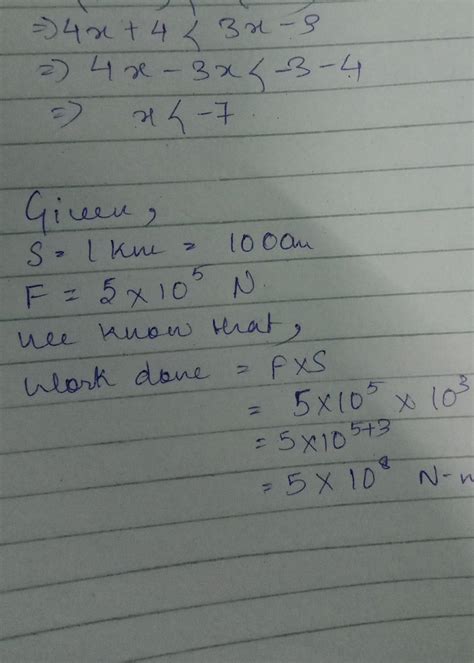 ⇒ 4x + 4 < 3x - 3
⇒ 4x - 3x < -3 - 4
⇒ x < -7
Given,
S = 1 Km = 1000m
F = 5 × 10⁵ N.
we know that,
Work done = F × S
= 5 × 10⁵ × 10³
= 5 × 10⁵⁺³
= 5 × 10⁸ N-m